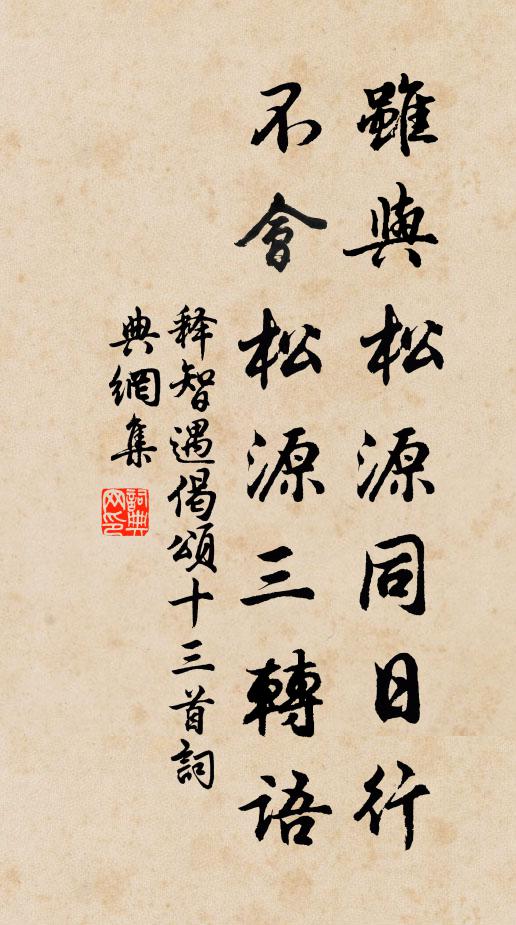 雖與松源同日行
不會松源三轉語
释智遇偈頌十三首詞
典網集
詞典网印